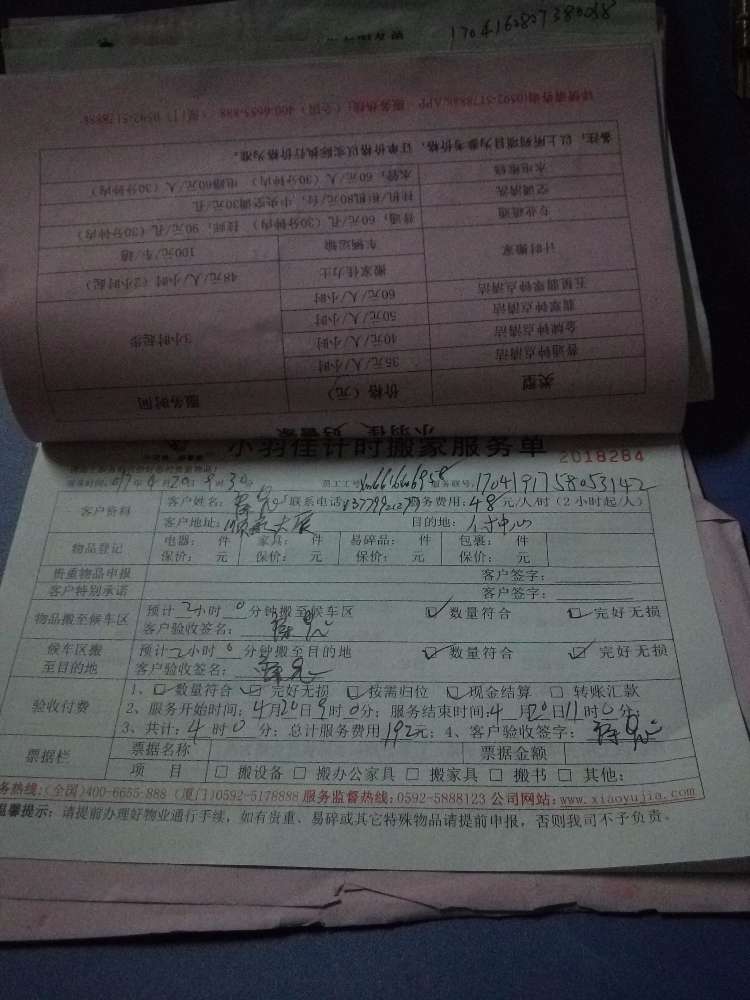 1704162807380058
详情请咨询0592-5178888, APP 服务热线:(全国) 400-6655-888 (厦门) 0592-5178888
类型 价格(元) 服务时间
普通钟点清洁 35元/人/小时 3小时起步
金牌钟点清洁 40元/人/小时
翡翠钟点清洁 50元/人/小时
五星翡翠钟点清洁 60元/人/小时
计时搬家 搬家佳力士 48元/人/小时(2小时起)
车辆运输 100元/车/趟
专业疏通 普通,60元/孔(30分钟内) 挂牌,90元/孔(30分钟内)
空调清洗 挂机/柜机80元/台,中央空调30元/孔
水电维修 水管,60元/人(30分钟内) 电路60元/人(30分钟内)
备注:以上所列项目为参考价格,订单价格以实际执行价格为准。
小羽佳 好管家
小羽佳计时搬家服务单
2018284
员工工号 服务联号:1704191758053142
客户资料 客户姓名: 联系电话 服务费用:48元/人/时(2小时起/人)
客户地址: 大厦 目的地: 中心
物品登记 电器: 件 家具: 件 易碎品: 件 包裹: 件
保价: 元 保价: 元 保价: 元 保价: 元
贵重物品申报 客户签字:
客户特别承诺 客户签字:
物品搬至候车区 预计2小时0分钟搬至候车区 数量符合 完好无损
客户验收签名:
候车区搬至目的地 预计2小时0分钟搬至目的地 数量符合 完好无损
客户验收签名:
验收付费 1、数量符合 完好无损 按需归位 现金结算 转账汇款
2、服务开始时间:4月20日9时0分;服务结束时间:4月20日11时0分;
3、共计:4时0分;总计服务费用192元;4、客户验收签字:
票据栏 票据名称 票据金额
项 目 搬设备 搬办公家具 搬家具 搬书 其他:
务热线:(全国)400-6655-888 (厦门)0592-5178888 服务监督热线:0592-5888123 公司网站:www.xiaoyujia.com
温馨提示:请提前办理好物业通行手续,如有贵重、易碎或其它特殊物品请提前申报,否则我司不予负责。